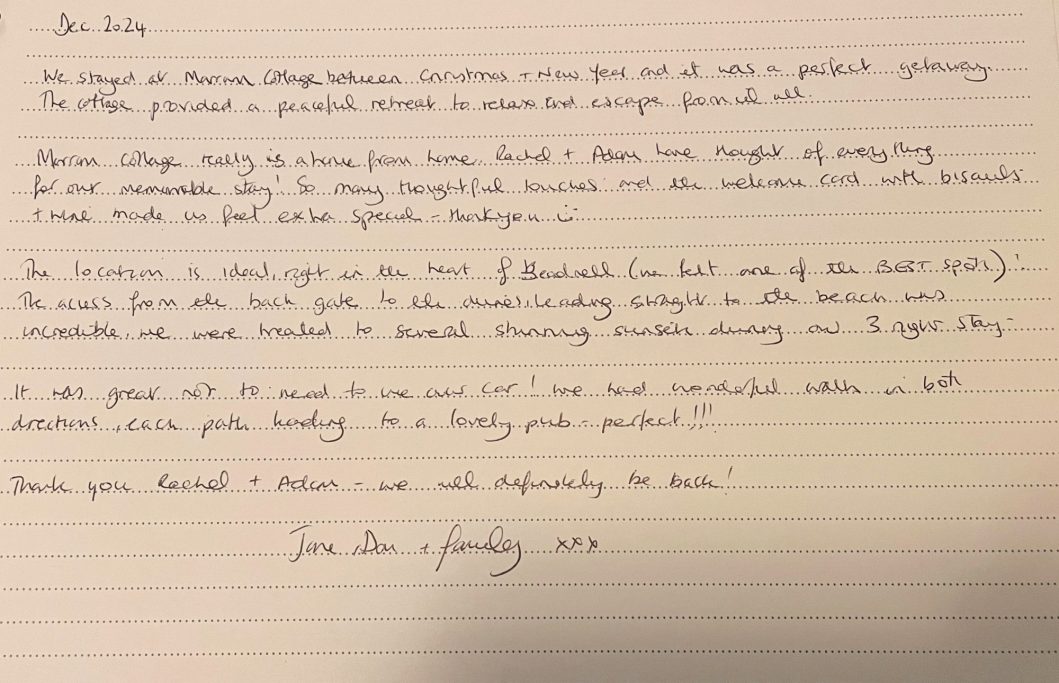 Dec 2024
We stayed at Marram Cottage between Christmas + New Year and it was a perfect getaway.
The cottage provided a peaceful retreat to relax and escape from it all.
Marram Cottage really is a home from home. Rachel + Adam have thought of everything
for our memorable stay! So many thoughtful touches and the welcome card with biscuits
+ wine made us feel extra special - thankyou :)
The location is ideal, right in the heart of Beadnell (we felt one of the BEST spots)!
The access from the back gate to the dunes, leading straight to the beach was
incredible, we were treated to several stunning sunsets during our 3 night stay -
It was great not to need to use our car! We had wonderful walks in both
directions, each path leading to a lovely pub - perfect!!!
Thank you Rachel + Adam - we will definitely be back!
Jane, Dan + family xxx